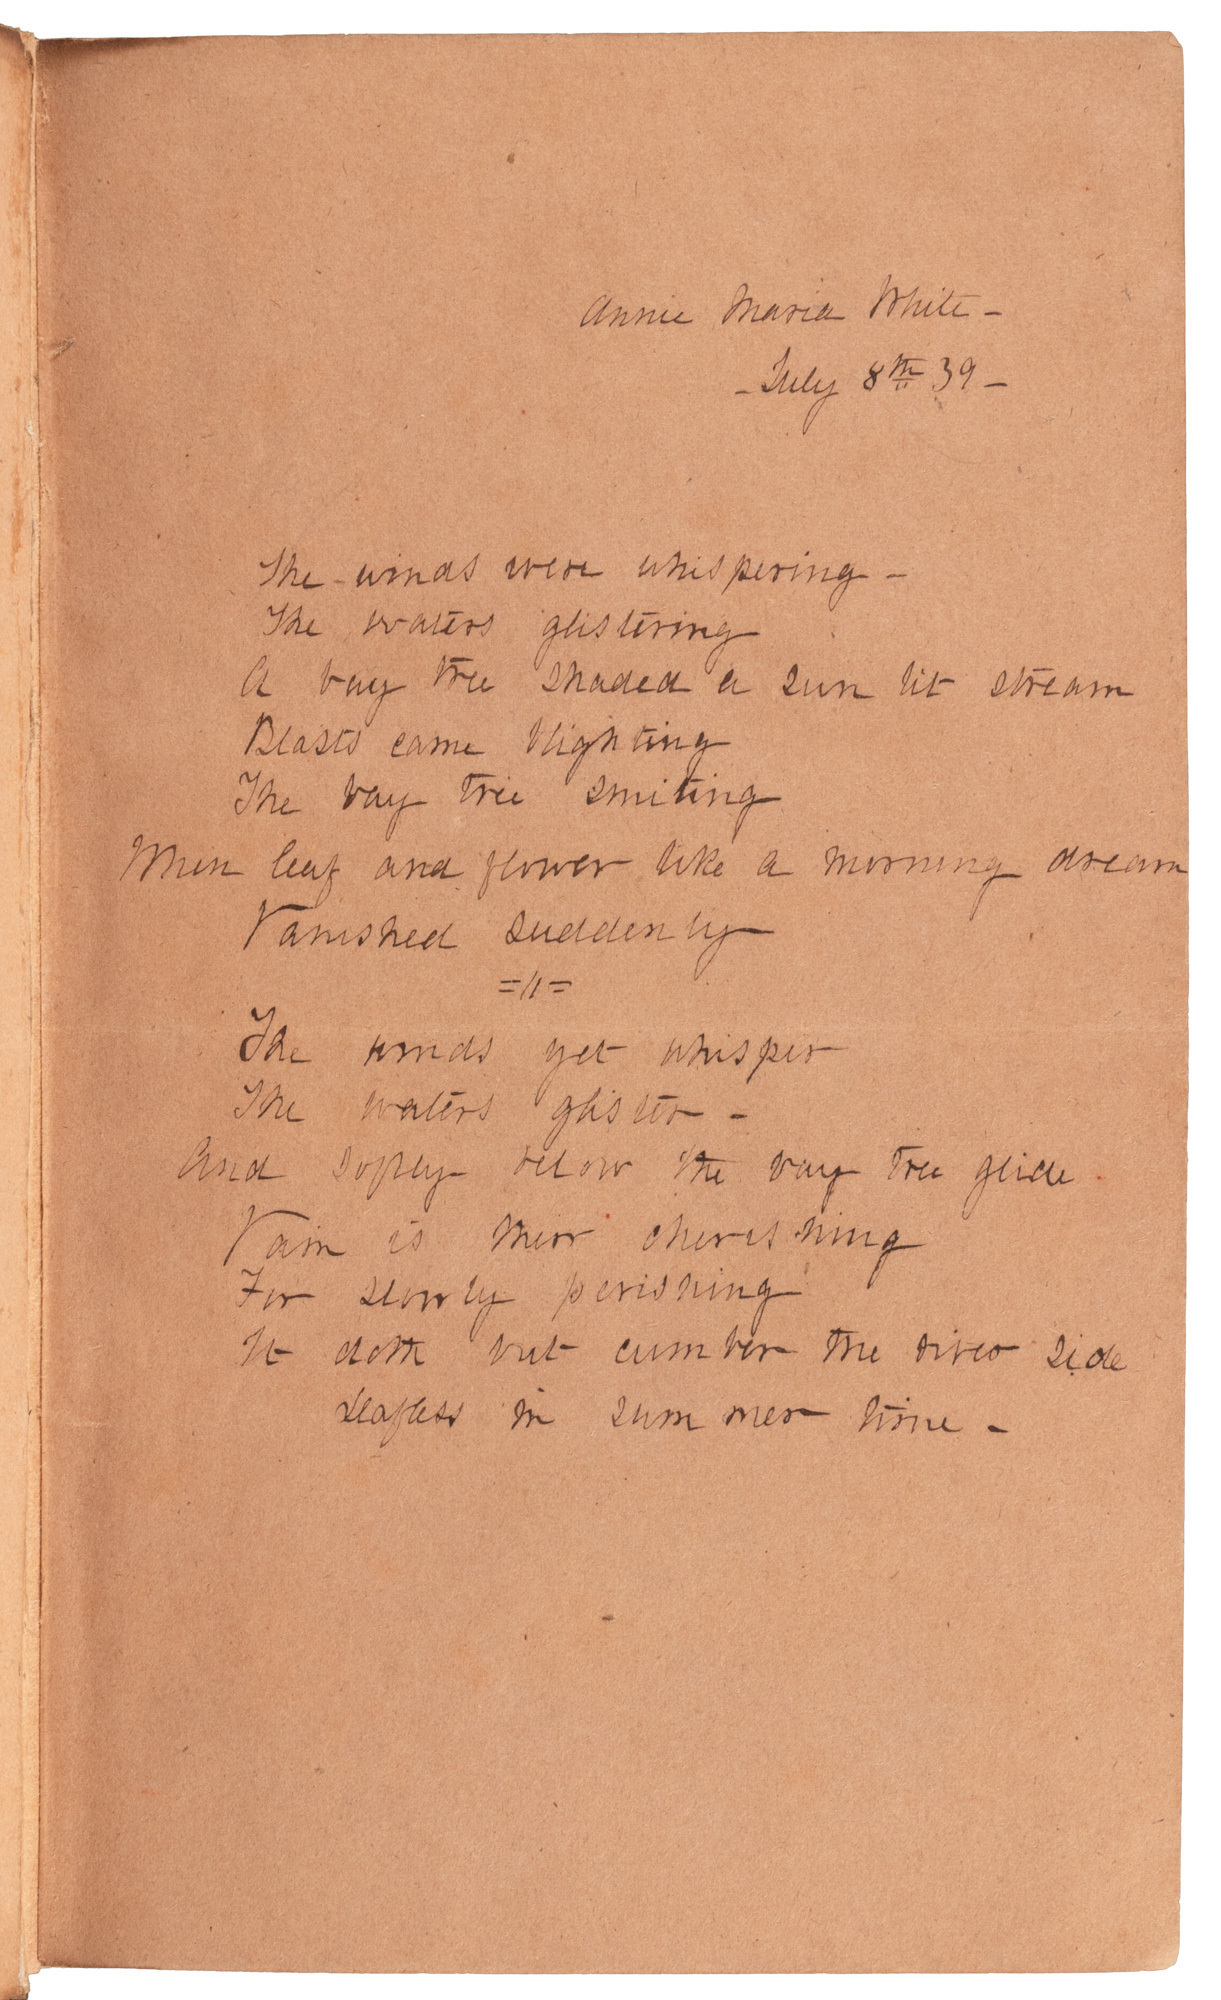 Annie Maria White -
- July 8th 39 -
The winds were whispering -
The waters glistering
A bay tree shaded a sun lit stream
Blasts came blighting
The bay tree smiting
When leaf and flower like a morning dream
Vanished suddenly
=//=
The winds yet whisper
The waters glister -
And softly below the bay tree glide
Vain is their cherishing
For slowly perishing
It doth but cumber the river side
Leafless in summer time -